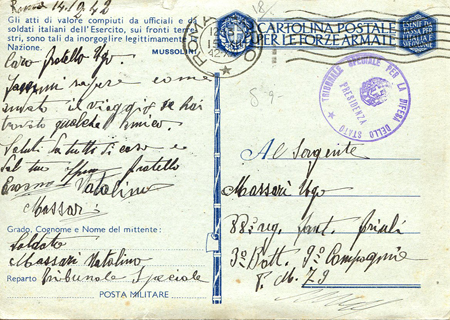 Roma 14/9/42
Gli atti di valore compiuti da ufficiali e da
soldati italiani dell'Esercito, sui fronti terrestri,
sono tali da inorgoglire legittimamente la
Nazione.
MUSSOLINI
Caro fratello Ugo.
sapere come
andato il viaggio se hai
trovato qualche amico.
Saluti da tutti di casa e
dal tuo fratello
Natalino
Massari
Grado, Cognome e Nome del mittente:
Soldato
Massari Natalino
Reparto Tribunale Speciale
POSTA MILITARE
CARTOLINA POSTALE
PER LE FORZE ARMATE
ROMA
TRIBUNALE SPECIALE PER LA DIFESA DELLO STATO
PRESIDENZA
Al Sergente
Massari Ugo
88º reg. fant. Friuli
3º Batt. 9ª Compagnia
P. M. 79